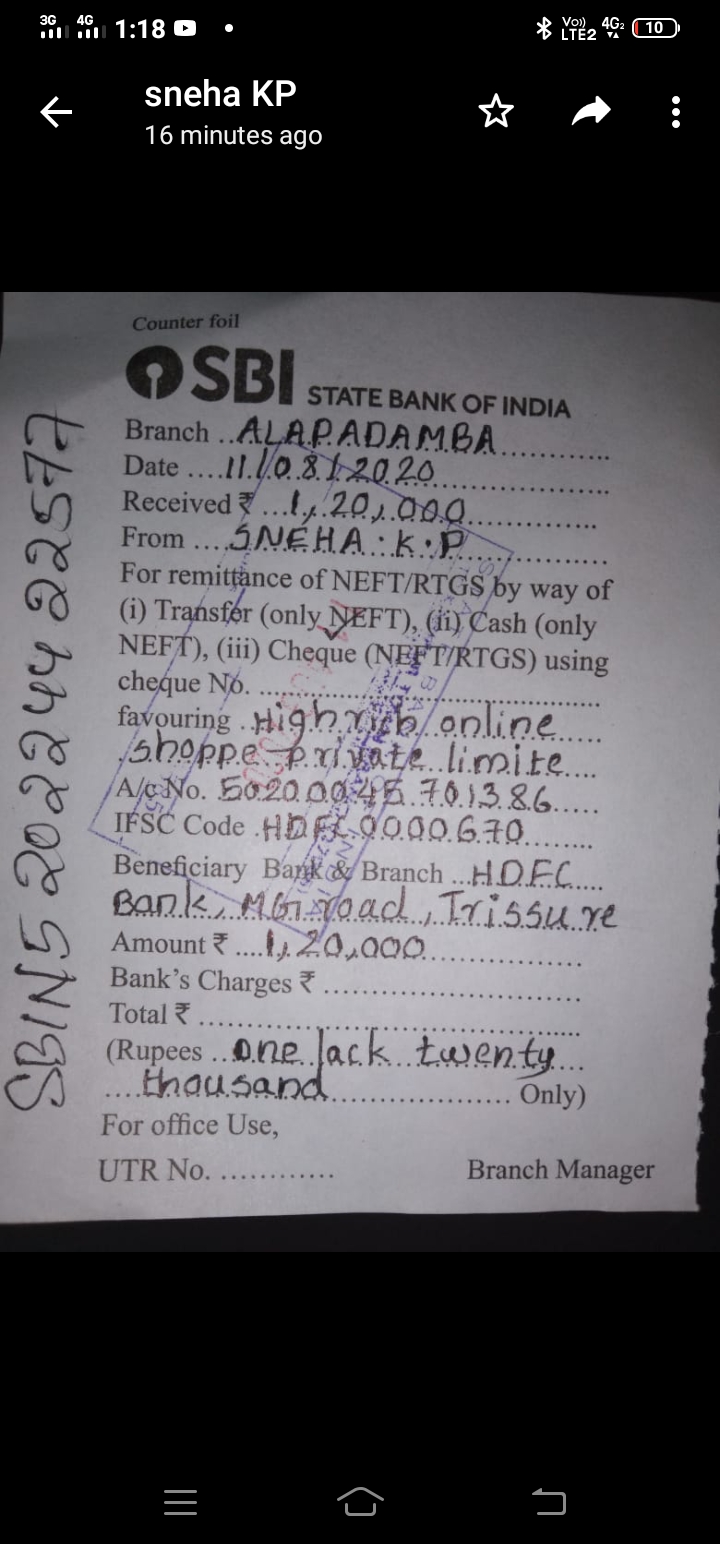 3G 4G 1:18 Vo)) LTE2 4G2 10
sneha KP
16 minutes ago
Counter foil
SBI STATE BANK OF INDIA
Branch ..ALAPADAMBA..............
Date ....11/08/2020..............
Received ₹ ...1,20,000..............
From ....SNEHA.K.P..............
For remittance of NEFT/RTGS by way of
(i) Transfer (only NEFT), (ii) Cash (only
NEFT), (iii) Cheque (NEFT/RTGS) using
cheque No. ..............
favouring .Highrich online.....
.shoppe private limite....
A/c No. 50200045701386.....
IFSC Code .HDFC0000670.......
Beneficiary Bank & Branch ...HDFC....
Bank, MG road, Trissure
Amount ₹ ....1,20,000..............
Bank's Charges ₹ ..............
Total ₹ ..............
(Rupees ..one lack twenty....
....thousand.............. Only)
For office Use,
UTR No. ............ Branch Manager
SBIN520224422577